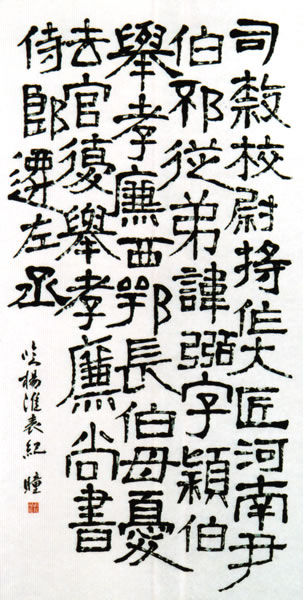 司隸校尉將作大匠河南尹
伯邳從弟諱弼字穎伯
舉孝廉西鄂長伯母憂
去官復舉孝廉尚書
侍郎遷左丞
臨楊淮表紀 瞳